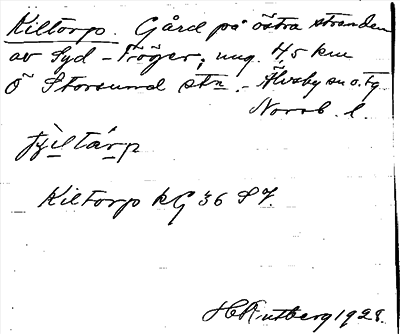 Kiltorp. Gård på östra stranden
av Syd-Tröger, ung. 4,5 km
Ö Storsund stn. - Älvsby sn o. tg.
Norrb. l.
Kiltorp kG 36 S7.
H Rutberg 1928.